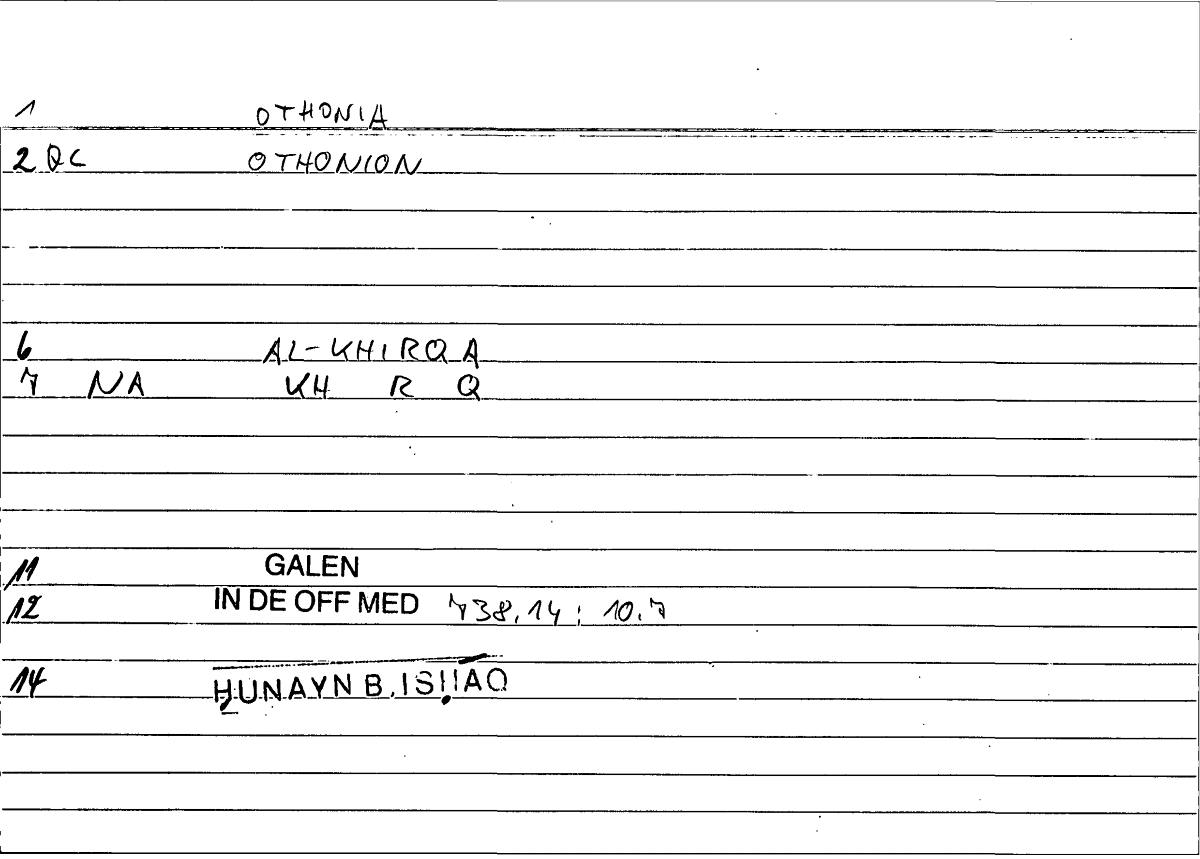 1 OTHONIA
2 QC OTHONION
6 AL-KHIRQA
7 NA KH R Q
11 GALEN
12 IN DE OFF MED 738,14 : 10.7
14 ḤUNAYN B. ISḤAQ